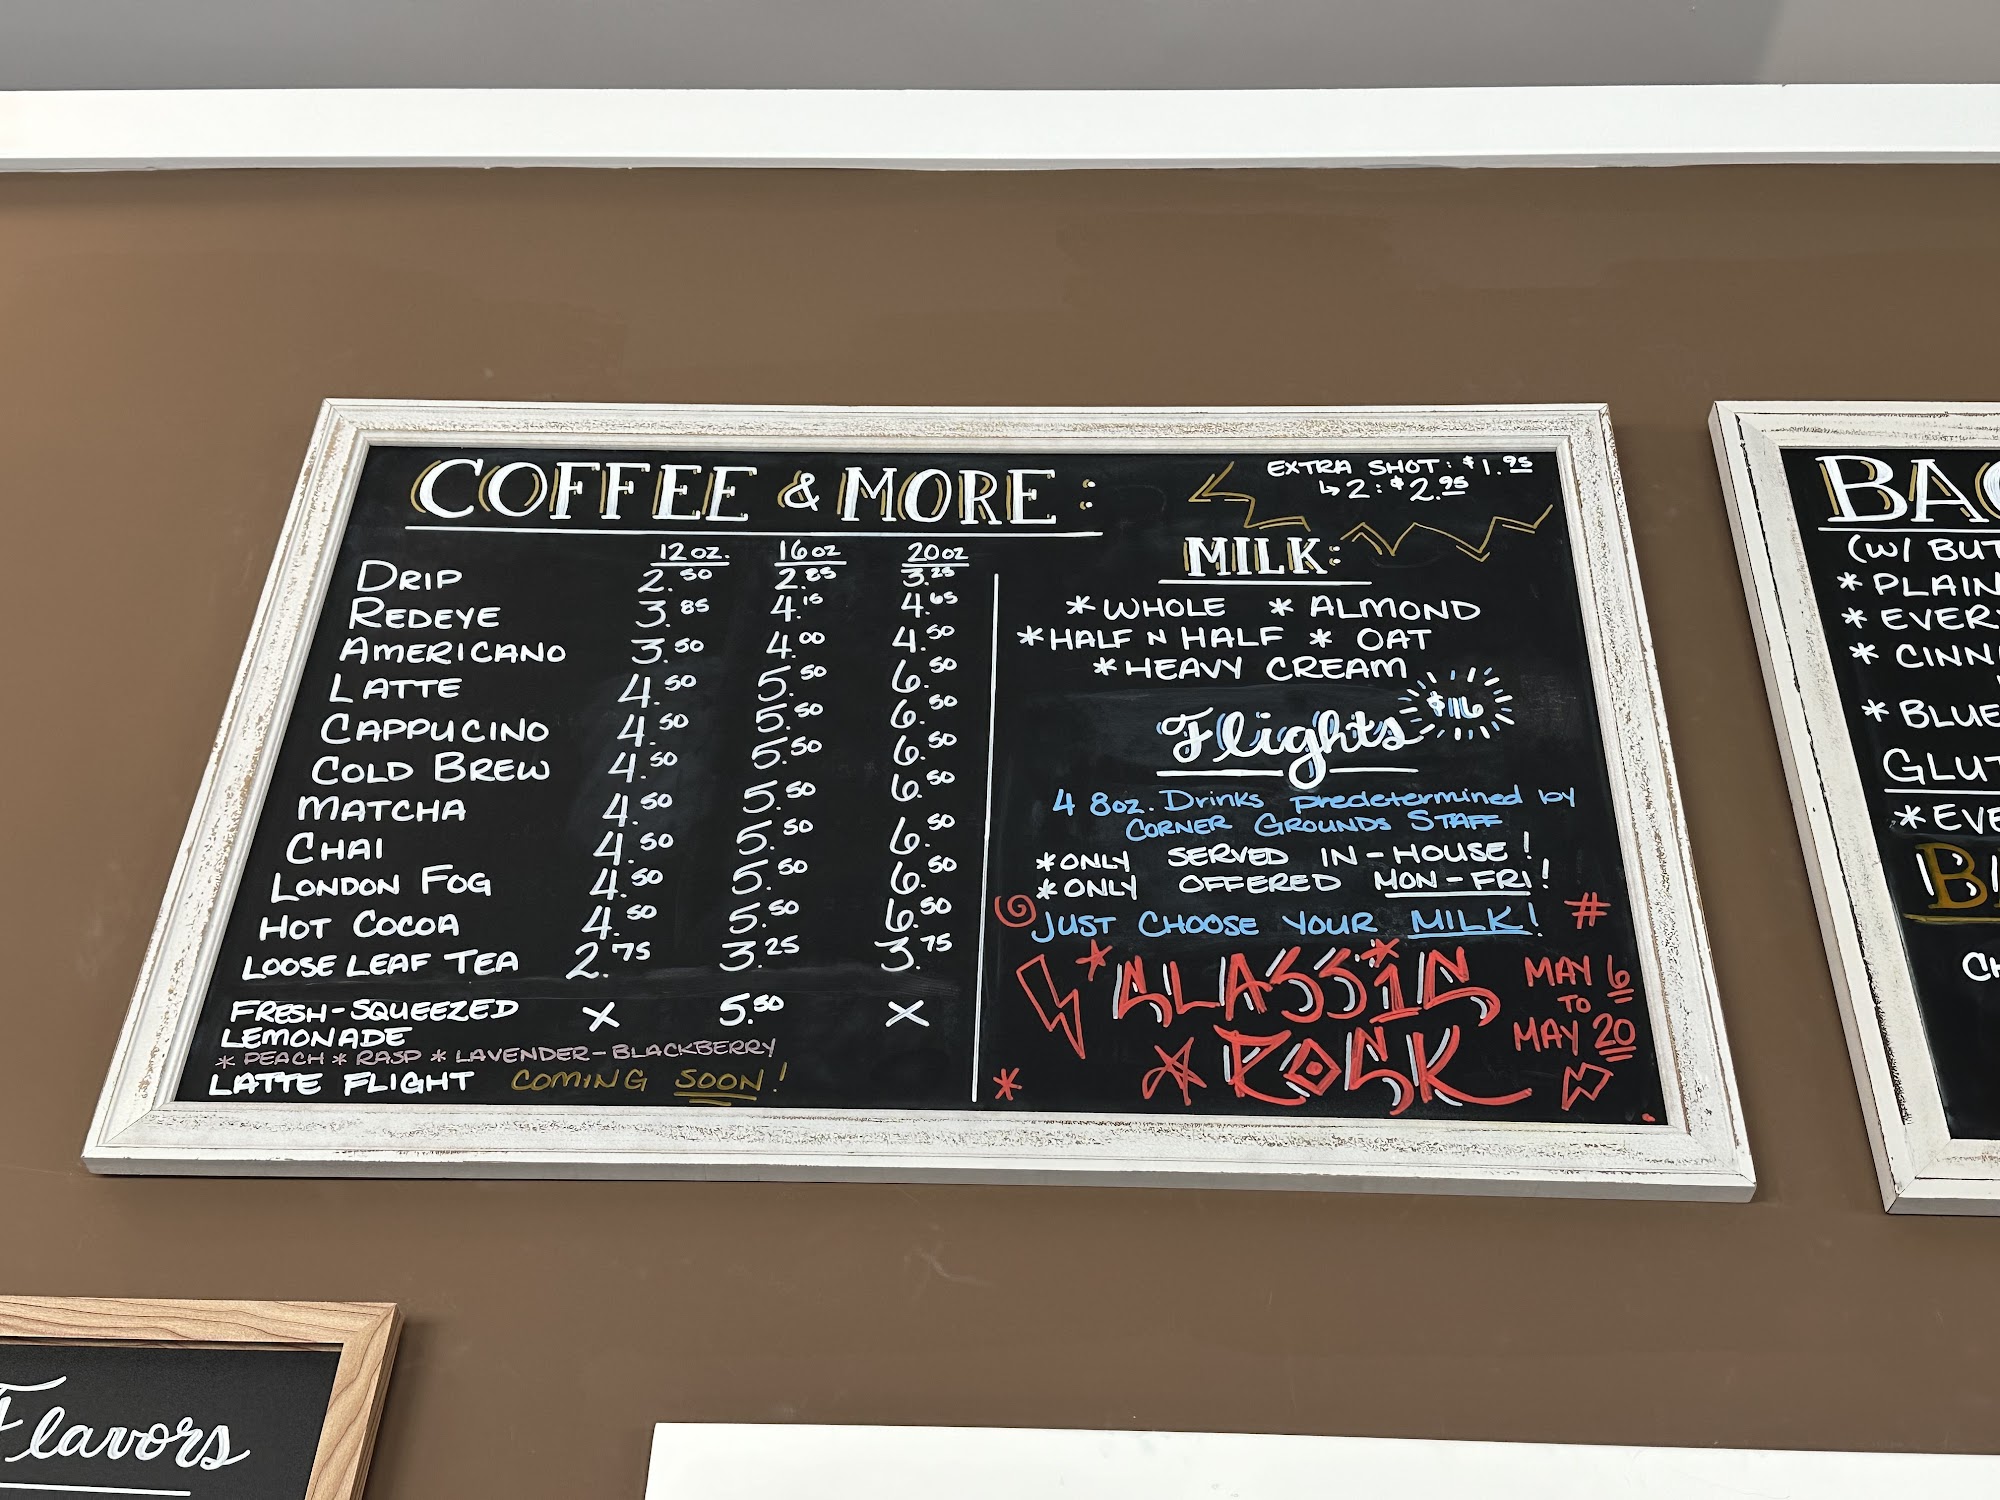 COFFEE & MORE:
12 oz. 16 oz 20 oz
DRIP 2.50 2.85 3.25
REDEYE 3.85 4.15 4.65
AMERICANO 3.50 4.00 4.50
LATTE 4.50 5.50 6.50
CAPPUCINO 4.50 5.50 6.50
COLD BREW 4.50 5.50 6.50
MATCHA 4.50 5.50 6.50
CHAI 4.50 5.50 6.50
LONDON FOG 4.50 5.50 6.50
HOT COCOA 4.50 5.50 6.50
LOOSE LEAF TEA 2.75 3.25 3.75
FRESH-SQUEEZED
LEMONADE X 5.50 X
* PEACH * RASP * LAVENDER-BLACKBERRY
LATTE FLIGHT COMING SOON!
EXTRA SHOT: $1.95
↳ 2: $2.95
MILK:
* WHOLE * ALMOND
* HALF N HALF * OAT
* HEAVY CREAM
Flights $16
4 8oz. Drinks predetermined by
CORNER GROUNDS STAFF
* ONLY SERVED IN-HOUSE!
* ONLY OFFERED MON-FRI!
JUST CHOOSE YOUR MILK! #
CLASSIC
ROCK
MAY 6
TO
MAY 20
(W/ BUT
* PLAIN
* EVER
* CINN
* BLUE
GLUT
* EVE
Flavors